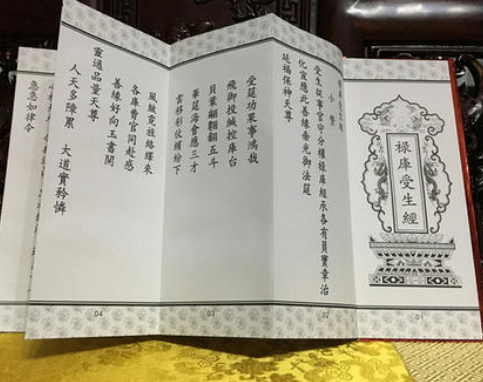 禄庫受生經
小讚
受生從事官守分權禄庫經承各有員寶章治
化宣應此善緣垂光御法筵
延福保神天尊
受筵功果事鴻哉
飛御投緘控庫台
貝葉翩翩翻五斗
華筵海會應三才
雲移彩仗繽紛下
風龍霓旌絡繹來
各庫曹官同赴感
善緣好向玉書開
靈通品量天尊
人天多障累 大道實矜憐
急急如律令
01
02
03
04